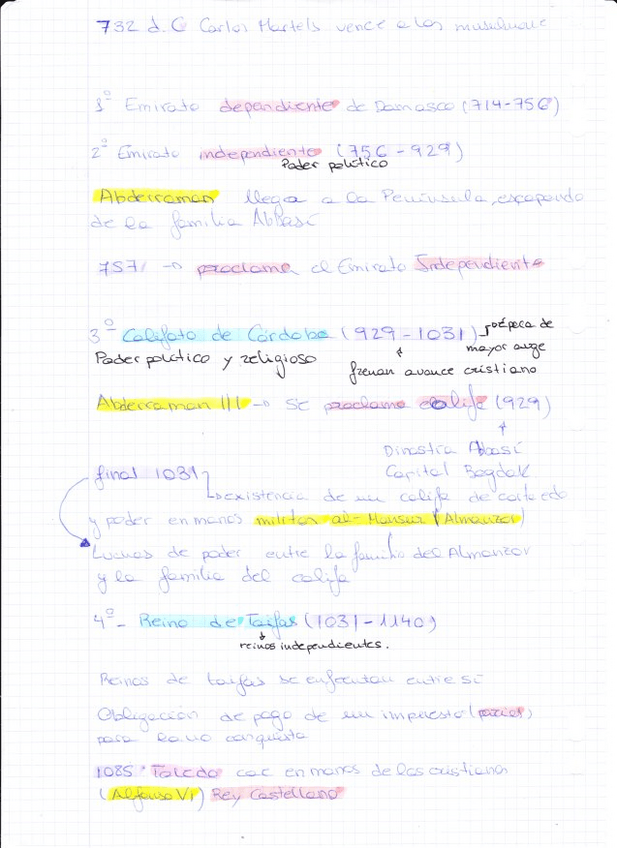 732 d.C Carlos Martels vence a los
1º Emirato dependiente de Damasco (714-756)
2º Emirato independiente (756-929)
Poder político
Abderraman llega a la Península, escapando
de la familia Abbasí
757/ → proclama el Emirato Independiente
3º Califato de Córdoba (929-1031) → época de
mayor auge
Poder político y religioso
frenan avance cristiano
Abderraman III → se proclama califa (929)
Dinastía Abasí
Capital Bagdak
final 1031
→ existencia de un califa de corta edad
y poder en manos militar al-Mansur (Almanzor)
Luchas de poder entre la familia del Almanzor
y la familia del califa
4º- Reino de Taifas (1031-1140)
reinos independientes.
Reinos de taifas se enfrentan entre sí
Obligación de pago de un impuesto (parias)
para la no conquista
1085 Toledo cae en manos de los cristianos
(Alfonso VI) Rey Castellano